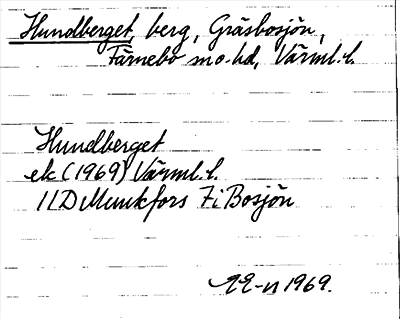 Hundberget, berg, Gräsbosjön,
Färnebo mo.hd, Värml.l.
Hundberget
ek (1969) Värml.l.
11D Munkfors 7i Bosjön
1969.